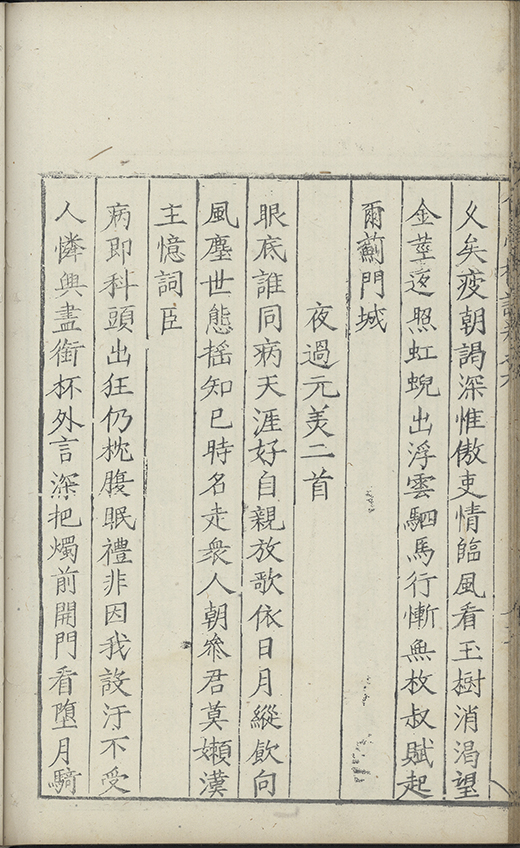 乂矣疲朝謁深惟傲吏情臨風看玉樹消渴望
金莖返照虹蜺出浮雲駟馬行慚無枚叔賦起
爾薊門城
夜過元美二首
眼底誰同病天涯好自親放歌依日月縱飲向
風塵世態揺知巳時名走衆人朝叅君莫嬾漢
主憶詞臣
病即科頭出狂仍枕腹眠禮非因我設汙不受
人憐興盡銜杯外言深把燭前開門看墮月騎